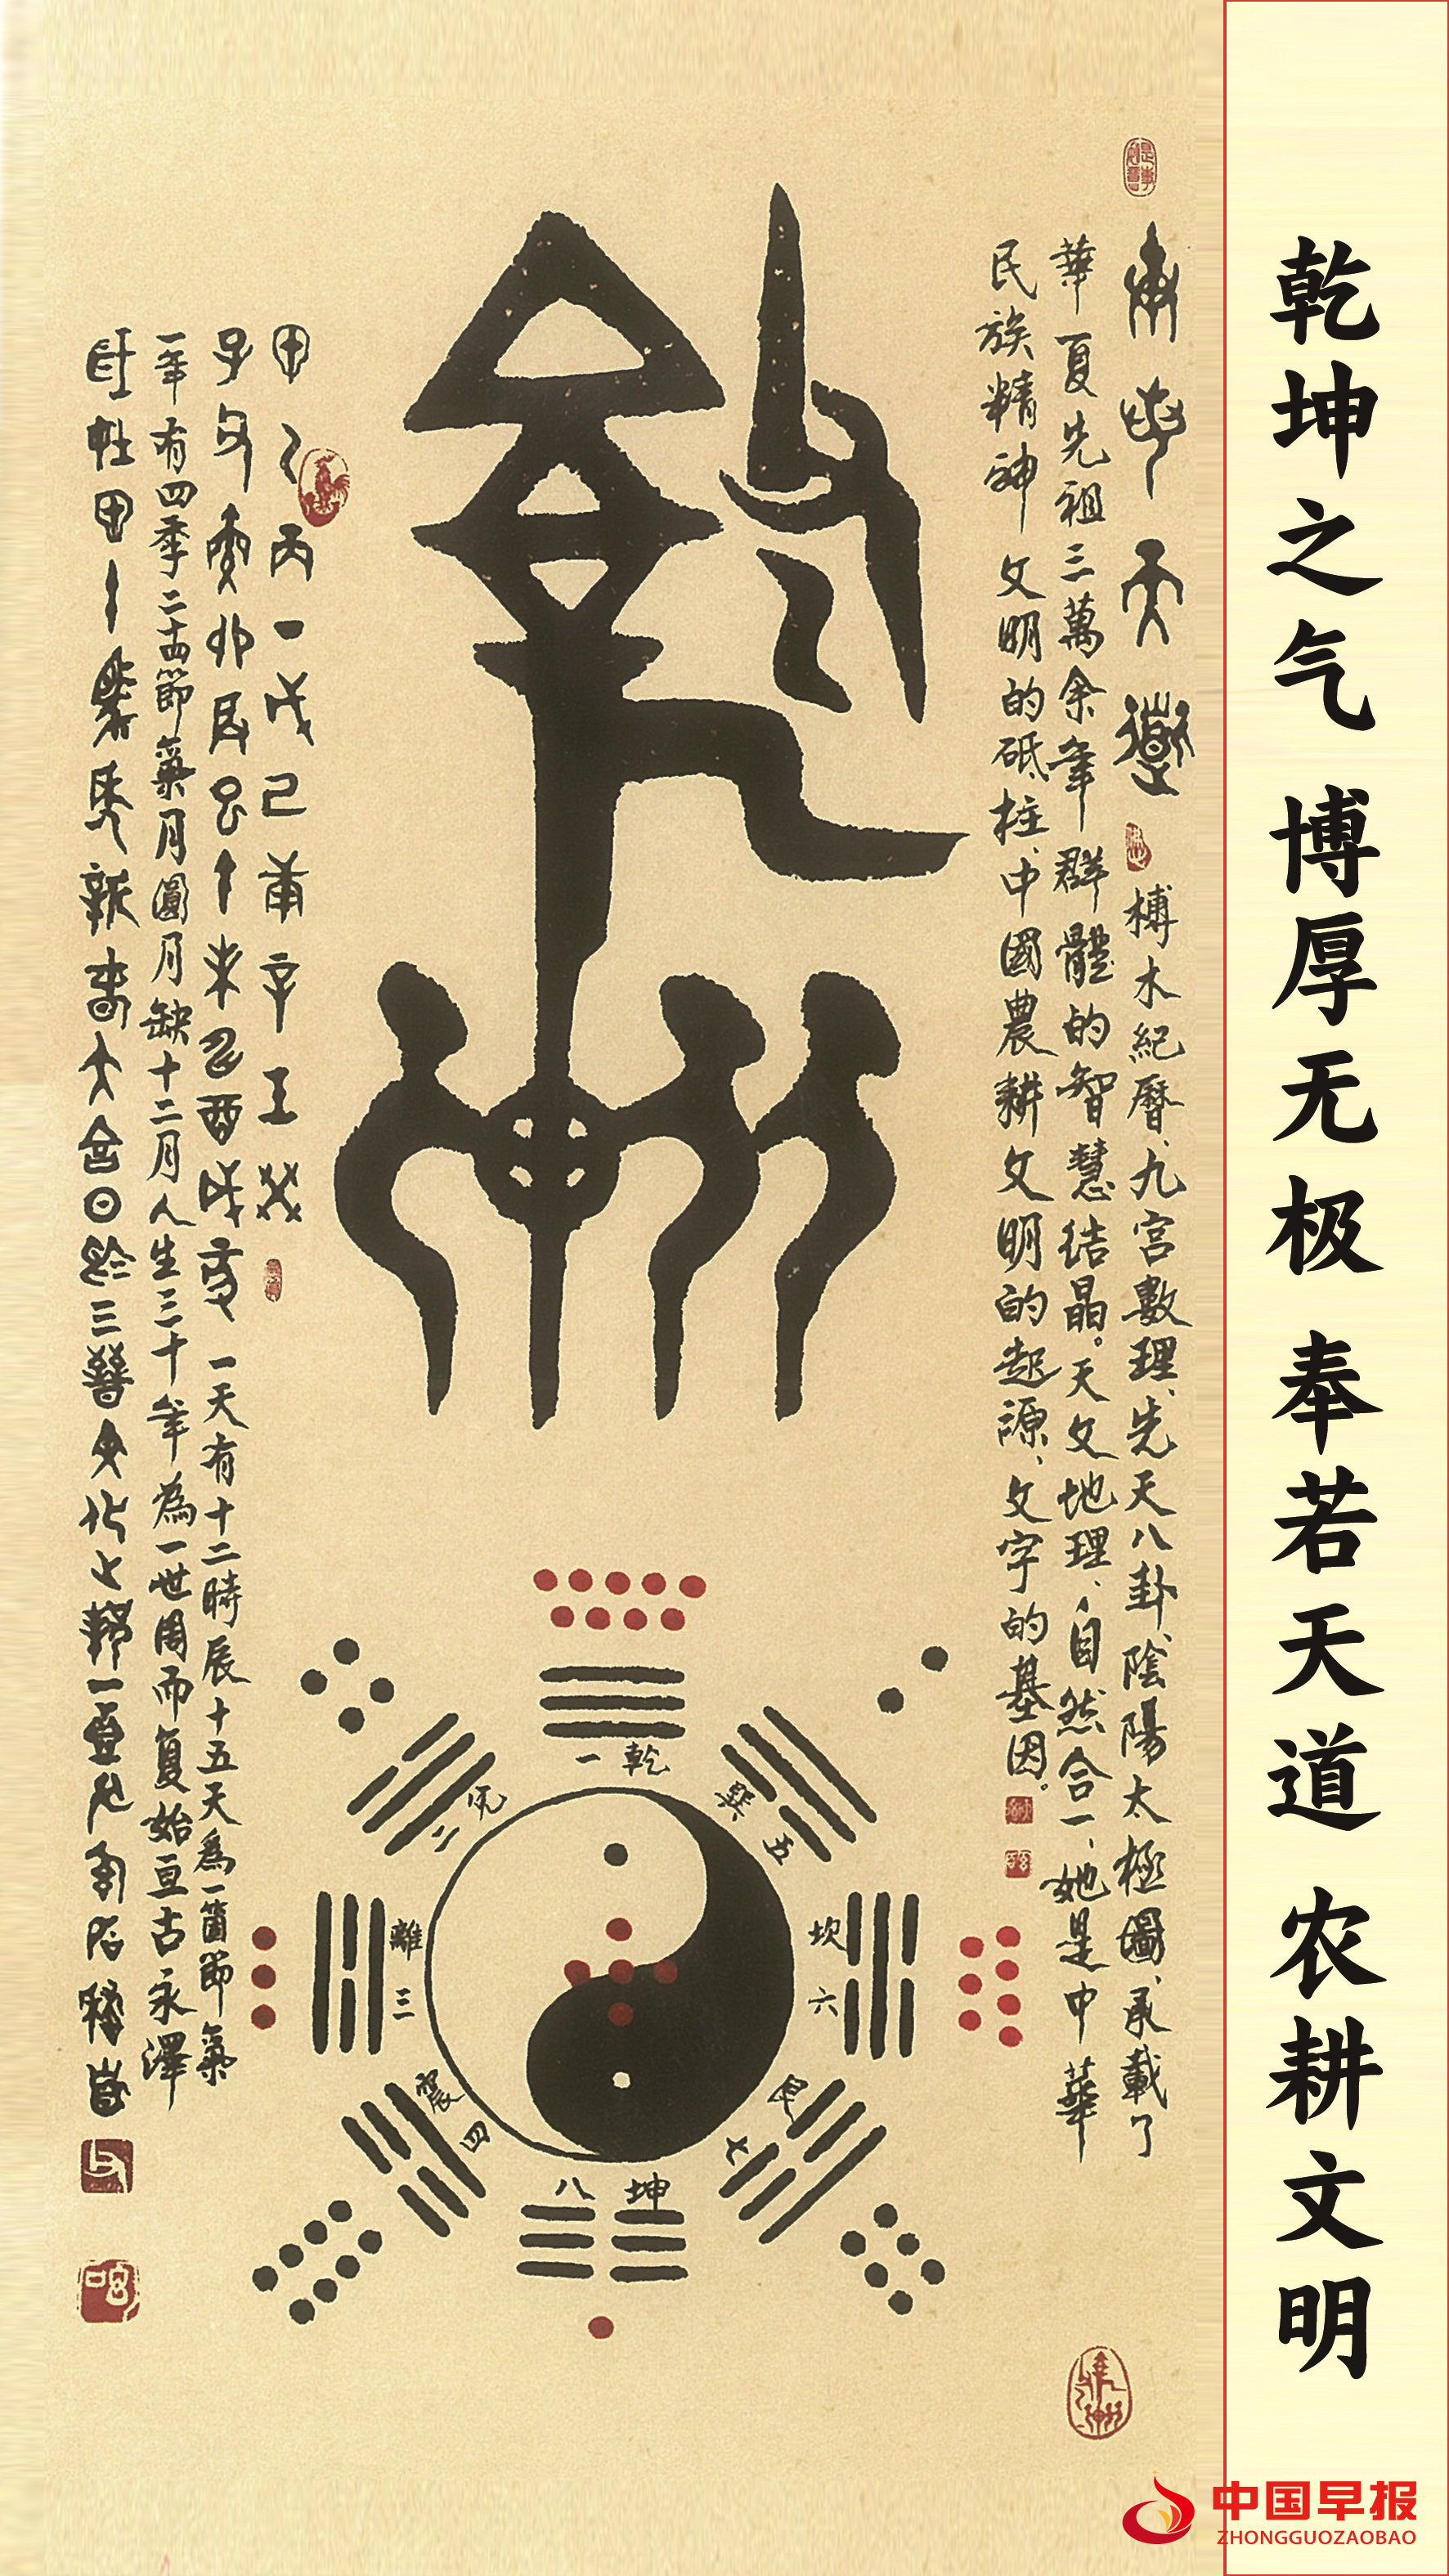 乾坤之气 博厚无极 奉若天道 农耕文明
榑木紀曆、九宫數理、先天八卦、陰陽太極圖、承載了
華夏先祖三萬余年群體的智慧结晶。天文地理、自然合一、她是中華
民族精神文明的砥柱、中國農耕文明的起源、文字的基因。
乾坤
甲乙丙丁戊己庚辛壬癸
子丑寅卯辰巳午未申酉戌亥 一天有十二時辰十五天為一箇節氣
一年有四季二十四節氣月圓月缺十二月人生三十年為一世周而复始亘古永澤
乾一
兑二
巽五
離三
坎六
震四
艮七
坤八
中国早报
ZHONGGUOZAOBAO